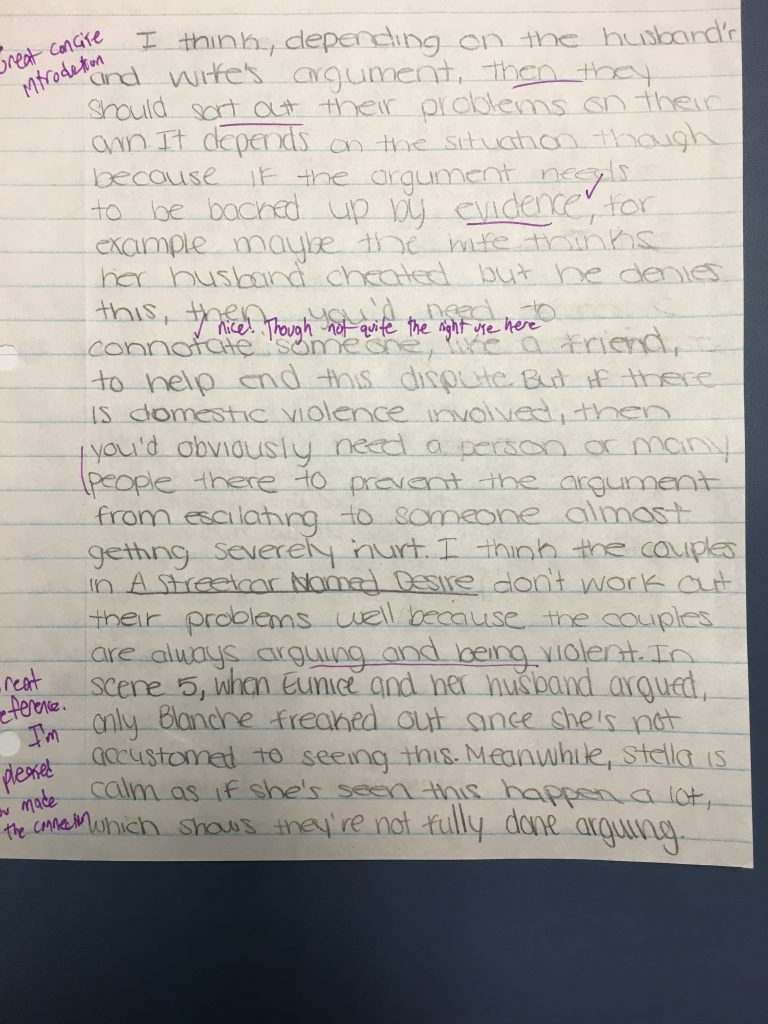 Great concise
ntroduction
I think, depending on the husband's
and wife's argument, then they
should sort out their problems on their
own. It depends on the situation though
because if the argument needs
to be backed up by evidence, for
example maybe the wife thinks
her husband cheated but he denies
this, then you'd need to
nice! Though not quite the right use here
connotate someone, like a friend,
to help end this dispute. But if there
is domestic violence involved, then
you'd obviously need a person or many
people there to prevent the argument
from escilating to someone almost
getting severely hurt. I think the couples
in A Streetcar Named Desire don't work out
their problems well because the couples
are always arguing and being violent. In
scene 5, when Eunice and her husband argued,
only Blanche freaked out since she's not
accustomed to seeing this. Meanwhile, Stella is
calm as if she's seen this happen a lot,
which shows they're not fully done arguing.
reat
eference.
I'm
pleased
ou made
the connection